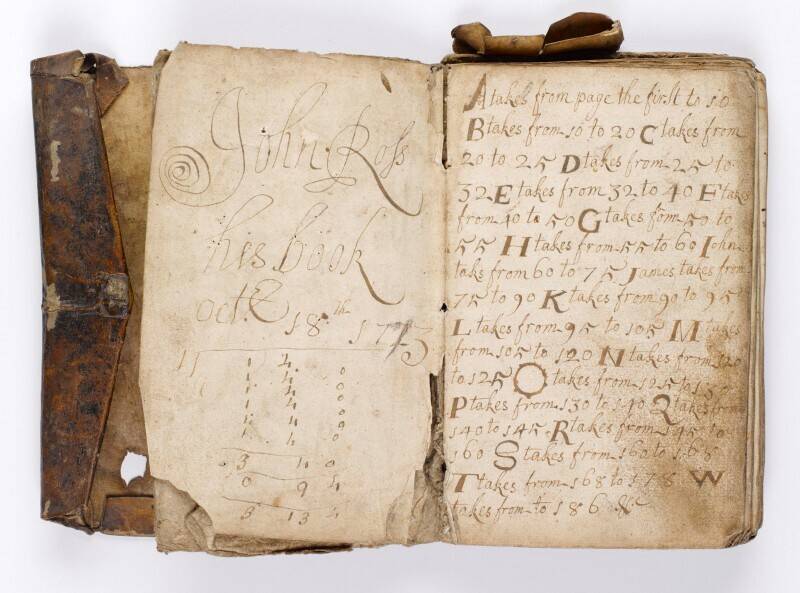 John Ross
his book
oct. 18th 1743
11 1 4 0
1 4 0
1 4 0
1 4 0
1 4 0
1 4 0
3 4 0
0 9 4
3 13 4
A takes from page the first to 10
B takes from 10 to 20 C takes from
20 to 25 D takes from 25 to
32 E takes from 32 to 40 F takes
from 40 to 50 G takes fom 50 to
55 H takes from 55 to 60 John
taks from 60 to 75 James takes from
75 to 90 K takes from 90 to 95
L takes from 95 to 105 M takes
from 105 to 120 N takes from 120
to 125 O takes from 125 to 130
P takes from 130 to 140 Q takes from
140 to 145 R takes from 145 to
160 S takes from 160 to 168
T takes from 168 to 178 W
takes from to 186 &c